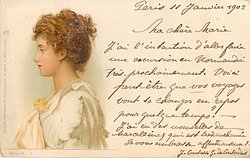 Paris 11 Janvier 1902
Ma chère Marie
J'ai l'intention d'aller faire
une excursion en Normandie
très prochainement. Voici
peut être que vos voyages
vont se changer en repos
pour quelque temps!
J'ai eu des nouvelles de
qui est
Je vous embrasse affectueusement